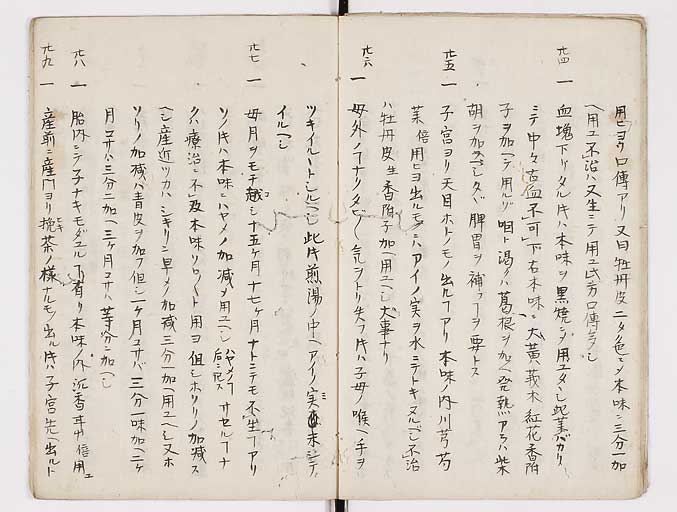 用ヒヨウ口傳アリ又曰牡丹皮ニタ色〆本味ニ三分一加
ヘ用ユ不治ハ又生ニテ用ユ此方口傳多シ
廿四 一 血塊下リタル片ハ本味ヲ黒焼シテ用ユヘシ
ミテ中々古血不可下右本味ニ大黄莪朮紅花香附
子ヲ加ヘテ用ル 咽ト渇クハ葛根ヲ加ヘ発熱アラハ柴
胡ヲ加フヘシ 脾胃ヲ補フヿヲ要トス
廿五 一 子宮ヨリ天目ホトノモノ出ルヿアリ本味ノ内川芎芍
薬倍用ヒヨ出ルモノニハアイノ実ヲ水ニテトキヌルヘシ不治
ハ牡丹皮生香附子加ヘ用ユヘシ大事ナリ
廿六 一 母外ノヿナク 気ヲトリ失フ片ハ子母ノ喉ヘ手ヲ
ツキイルヽトシルヘシ此片煎湯ノ中ヘアイノ実ミ末シテ
イルヘシ
廿七 一 毎月ヲモチ越シ十五ケ月十七ケ月ナトニテモ不生ヿアリ
ソノ片ハ本味ニハヤメノ加減〆用ユヘシ ハヤメノヿ后ニ記ス サセルヿナ
クハ療治ニ不及本味ソロソロト用ヨ但シホソリノ加減ス
ヘシ産近ツカハシキリニ早メノ加減三分一加ヘ用ユヘシ又ホ
ソリノ加減ハ青皮ヲ加フ但シ一ケ月コサハ三分一味加ヘ二ケ
月コサハ三分二加ヘ三ケ月コサハ等分ニ加ヘシ
廿八 一 胎内ニテ子ナキモダユルヿ有リ本味ノ内沉香 倍用ユ
廿九 一 産前ニ産門ヨリ挽茶ノ様ナルモノ出ル片ハ子宮先ヘ出ルト